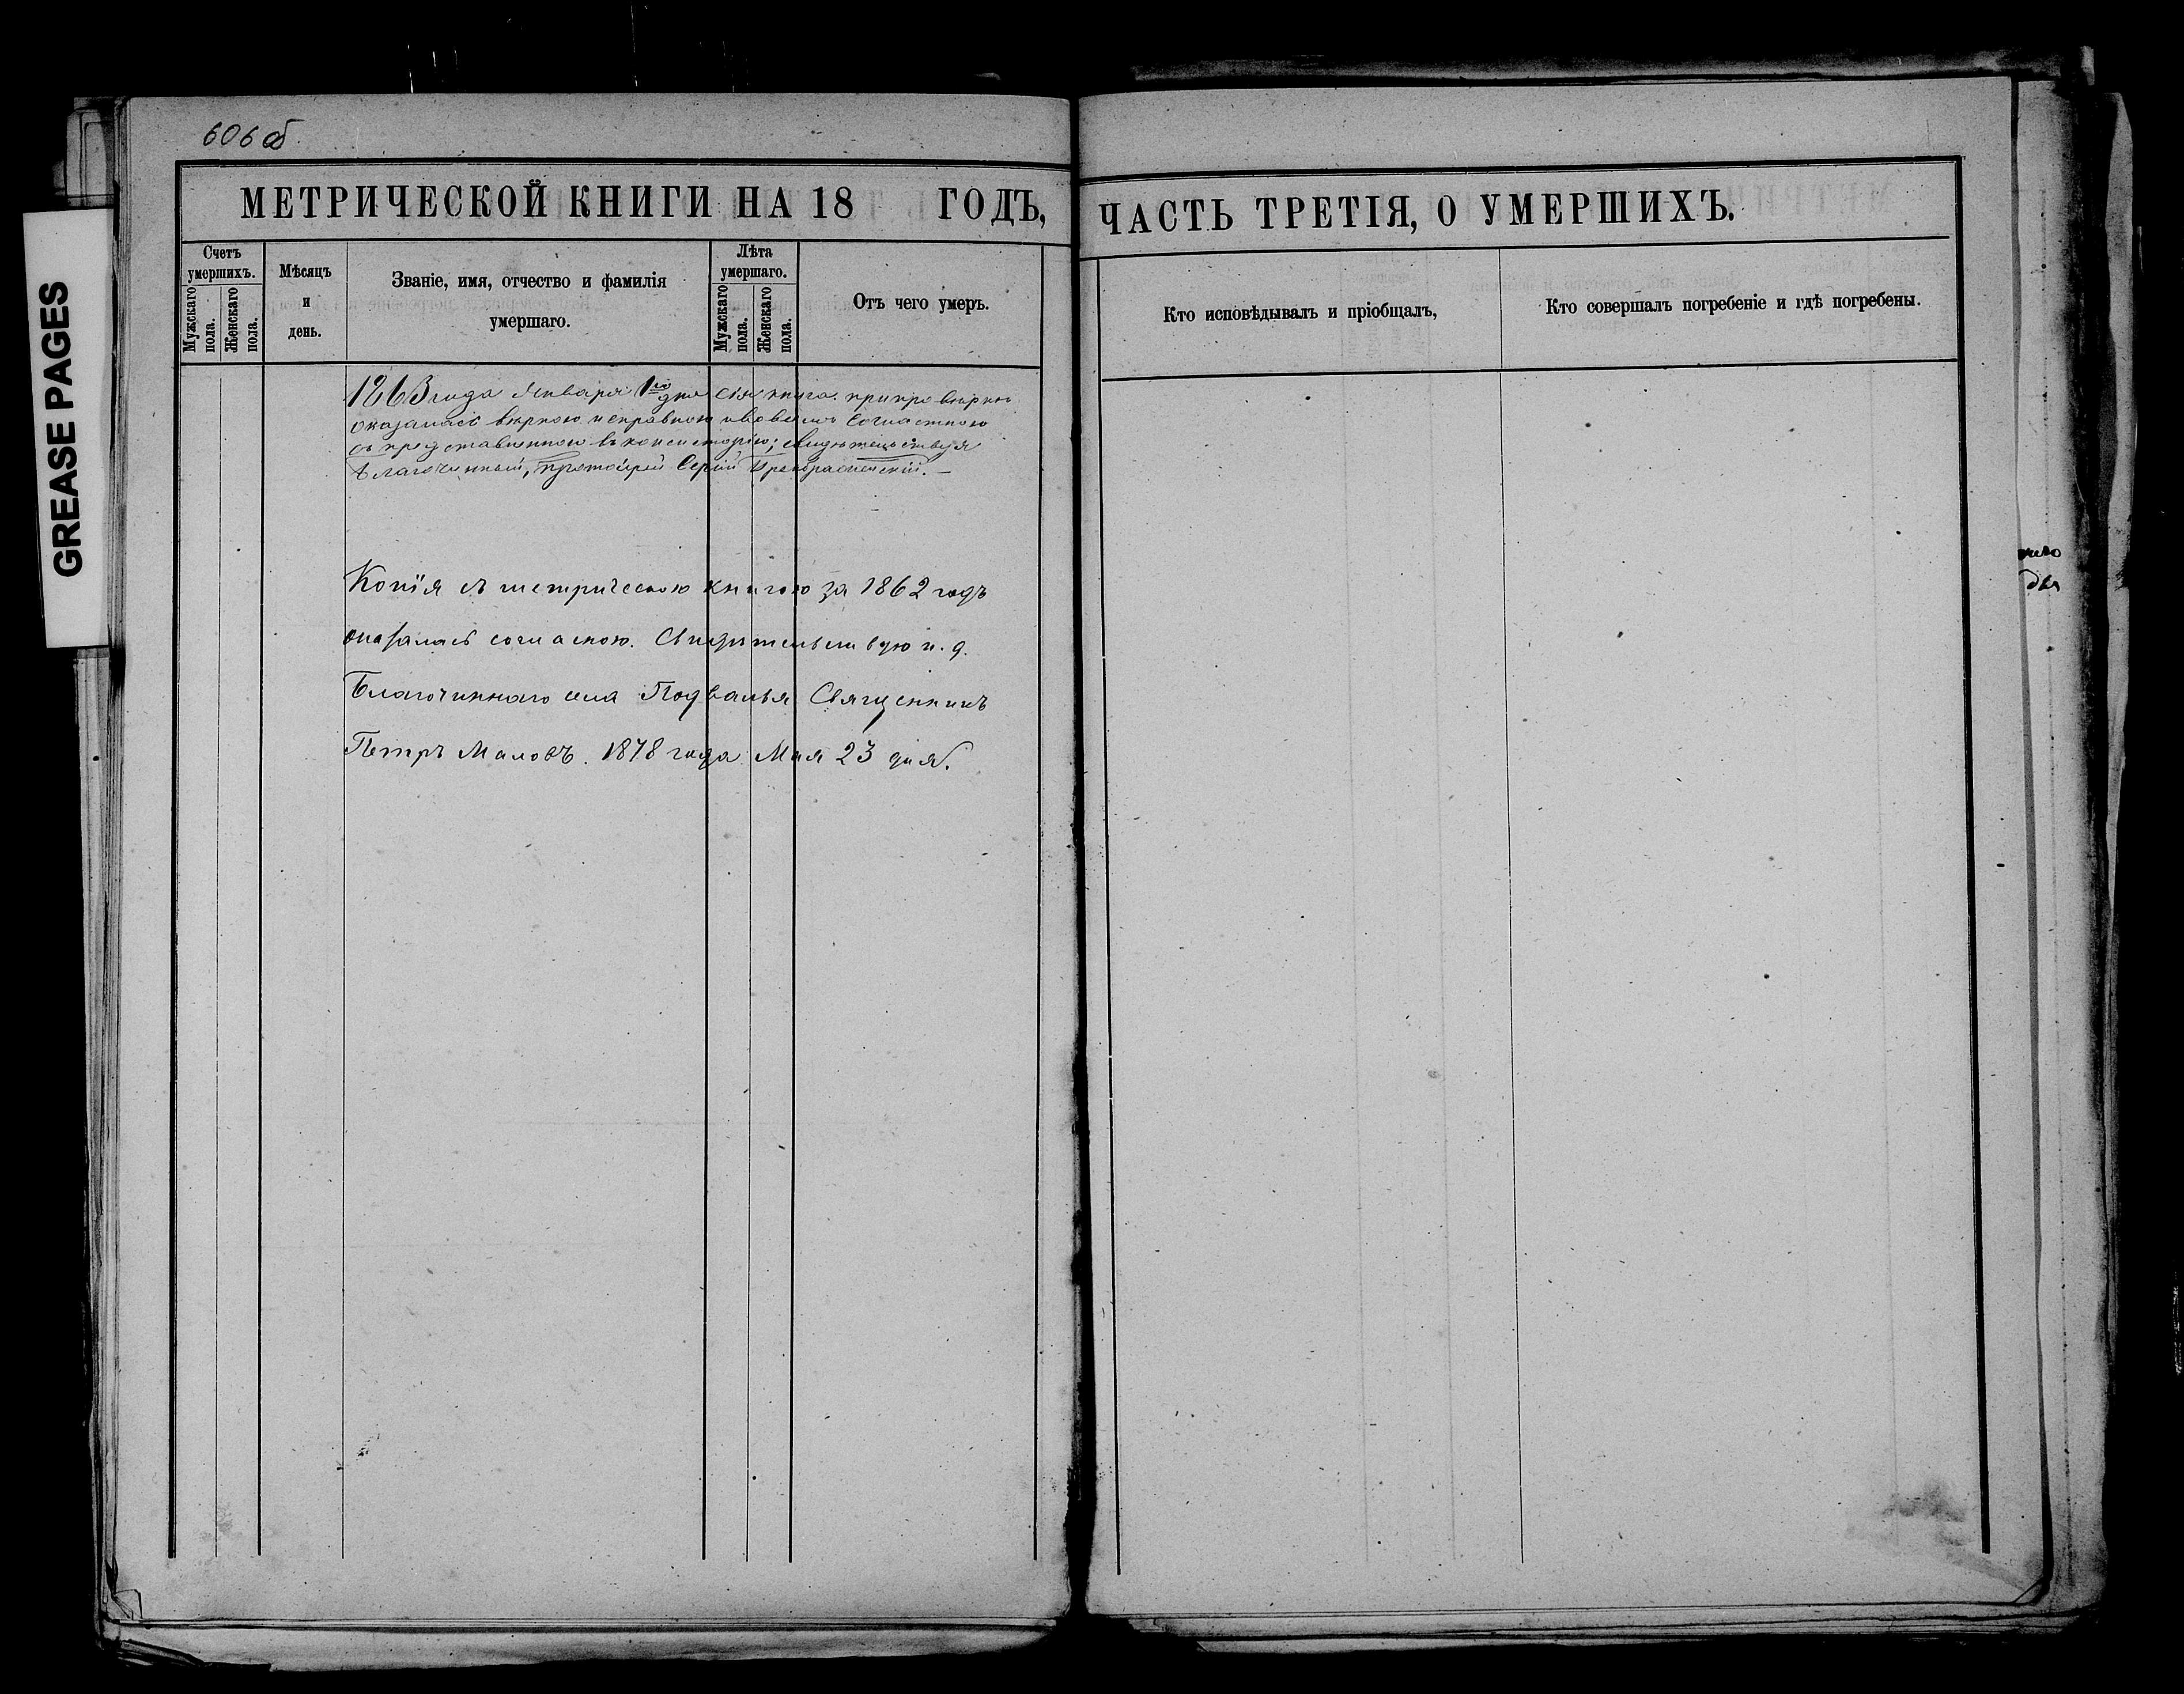 606 об
GREASE PAGES
МЕТРИЧЕСКОЙ КНИГИ НА 18 ГОДЪ,
Счетъ умершихъ.
Мужскаго пола.
Женскаго пола.
Мѣсяцъ и день.
Званіе, имя, отчество и фамилія умершаго.
Лѣта умершаго.
Мужскаго пола.
Женскаго пола.
Отъ чего умеръ.
1863 года Января 1го дня сія книга при провѣркѣ
оказалась вѣрною исправною и во всемъ согласною
съ представленною въ консисторію; свидѣтельствуя
Благочинный, протоіерей Сергій Преображенскій.
Копія съ метрическою книгою за 1862 годъ
оказалась согласною. Свидѣтельствую и. д.
Благочиннаго села Подвалья Священникъ
Петръ Маловъ. 1878 года Мая 23 дня.
ЧАСТЬ ТРЕТІЯ, О УМЕРШИХЪ.
Кто исповѣдывалъ и пріобщалъ,
Кто совершалъ погребеніе и гдѣ погребены.